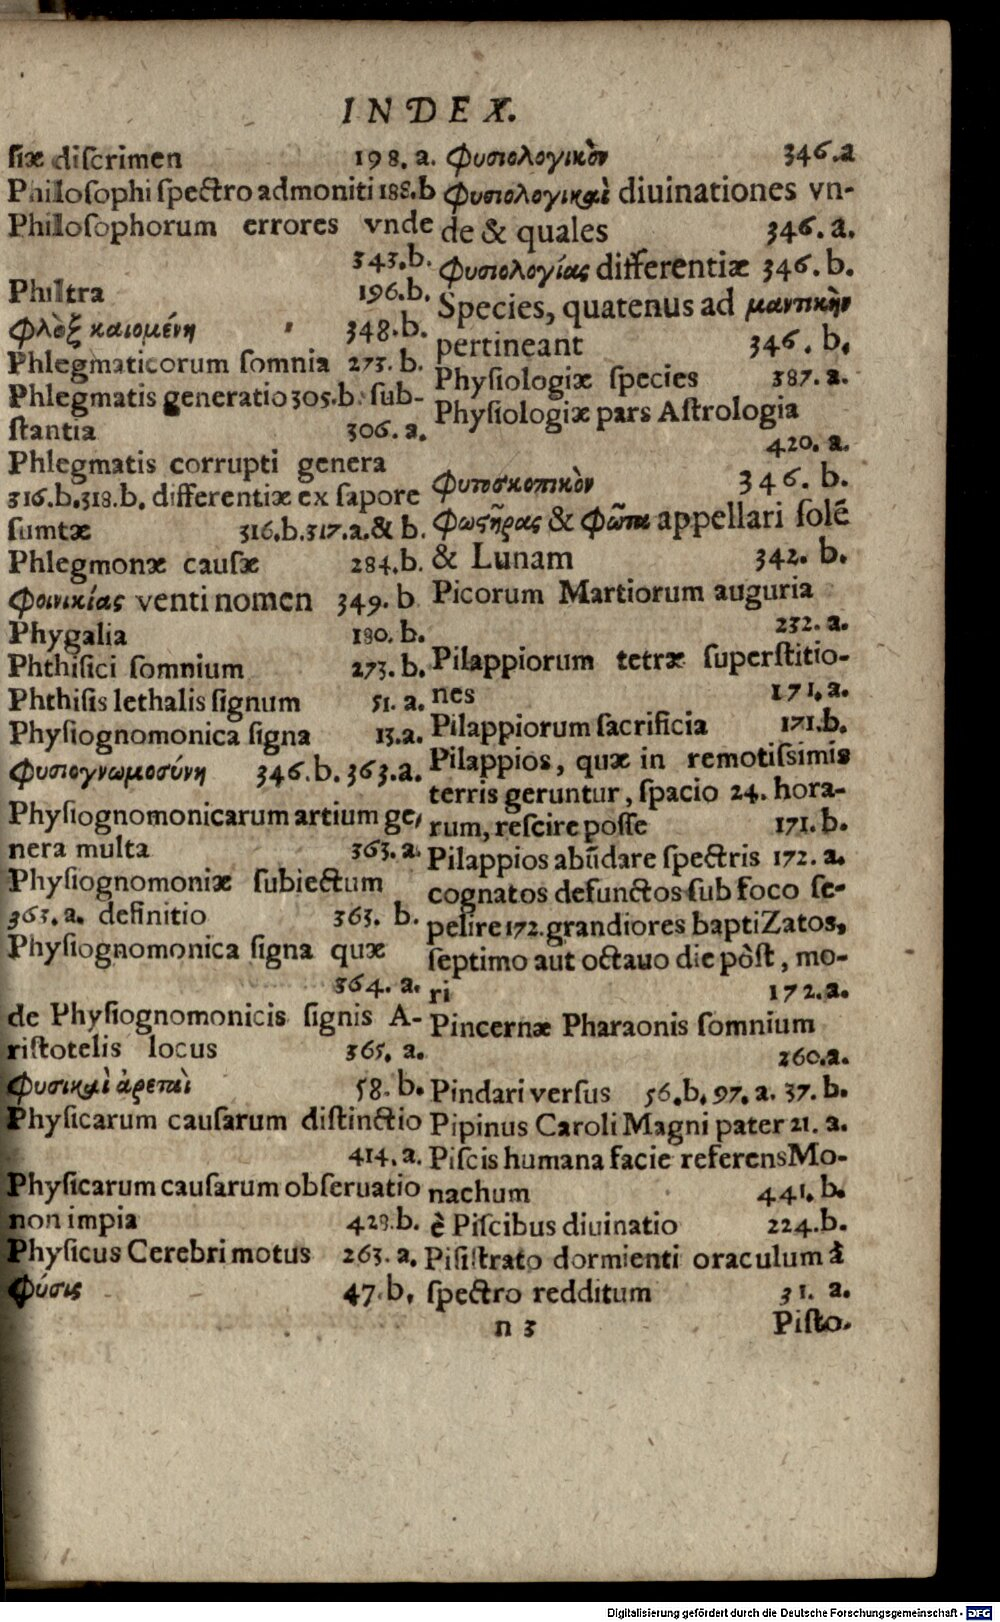 INDEX.
ſiæ diſcrimen 198. a.
Philoſophi ſpectro admoniti 188.b
Philoſophorum errores vnde
343.b.
Philtra 196.b.
Φλὸξ καιομένη 348.b.
Phlegmaticorum ſomnia 273. b.
Phlegmatis generatio 305.b. ſub-
ſtantia 306. a.
Phlegmatis corrupti genera
316.b.318.b. differentiæ ex ſapore
ſumtæ 316.b.317.a.& b.
Phlegmonæ cauſæ 284.b.
Φοινικίας venti nomen 349. b
Phygalia 180. b.
Phthiſici ſomnium 273. b.
Phthiſis lethalis ſignum 51. a.
Phyſiognomonica ſigna 13.a.
Φυσιογνωμοσύνη 346.b. 363.a.
Phyſiognomonicarum artium ge,
nera multa 363. a.
Phyſiognomoniæ ſubiectum
363. a. definitio 363. b.
Phyſiognomonica ſigna quæ
364. a.
de Phyſiognomonicis ſignis A-
riſtotelis locus 365. a.
Φυσικαὶ ἀρεταὶ 58. b.
Phyſicarum cauſarum diſtinctio
414. a.
Phyſicarum cauſarum obſeruatio
non impia 428.b.
Phyſicus Cerebri motus 263. a.
Φύσις 47. b.
Φυσιολογικὸν 346.a
Φυσιολογικαὶ diuinationes vn-
de & quales 346. a.
Φυσιολογίας differentiæ 346. b.
Species, quatenus ad μαντικὴν
pertineant 346. b.
Phyſiologiæ ſpecies 387. a.
Phyſiologiæ pars Aſtrologia
420. a.
Φυτοσκοπικὸν 346. b.
Φωϛῆρας & Φῶτα appellari ſolẽ
& Lunam 342. b.
Picorum Martiorum auguria
232. a.
Pilappiorum tetræ ſuperſtitio-
nes 171. a.
Pilappiorum ſacrificia 171.b.
Pilappios, quæ in remotiſsimis
terris geruntur, ſpacio 24. hora-
rum, reſcire poſſe 171. b.
Pilappios abũdare ſpectris 172. a.
cognatos defunctos ſub foco ſe-
pelire 172. grandiores baptiZatos,
ſeptimo aut octauo die pòſt, mo-
ri 172.a.
Pincernæ Pharaonis ſomnium
260.a.
Pindari verſus 56.b. 97. a. 37. b.
Pipinus Caroli Magni pater 21. a.
Piſcis humana facie referens Mo-
nachum 441. b.
è Piſcibus diuinatio 224.b.
Piſiſtrato dormienti oraculum à
ſpectro redditum 31. a.
n 3 Piſto-
Digitalisierung gefördert durch die Deutsche Forschungsgemeinschaft - DFG